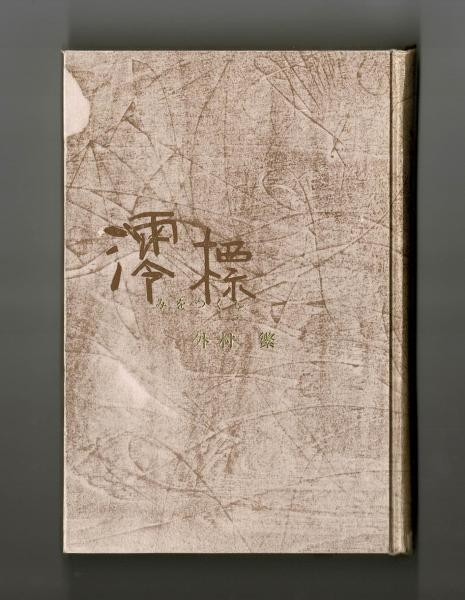 澪標
みをつくし
外村 繁